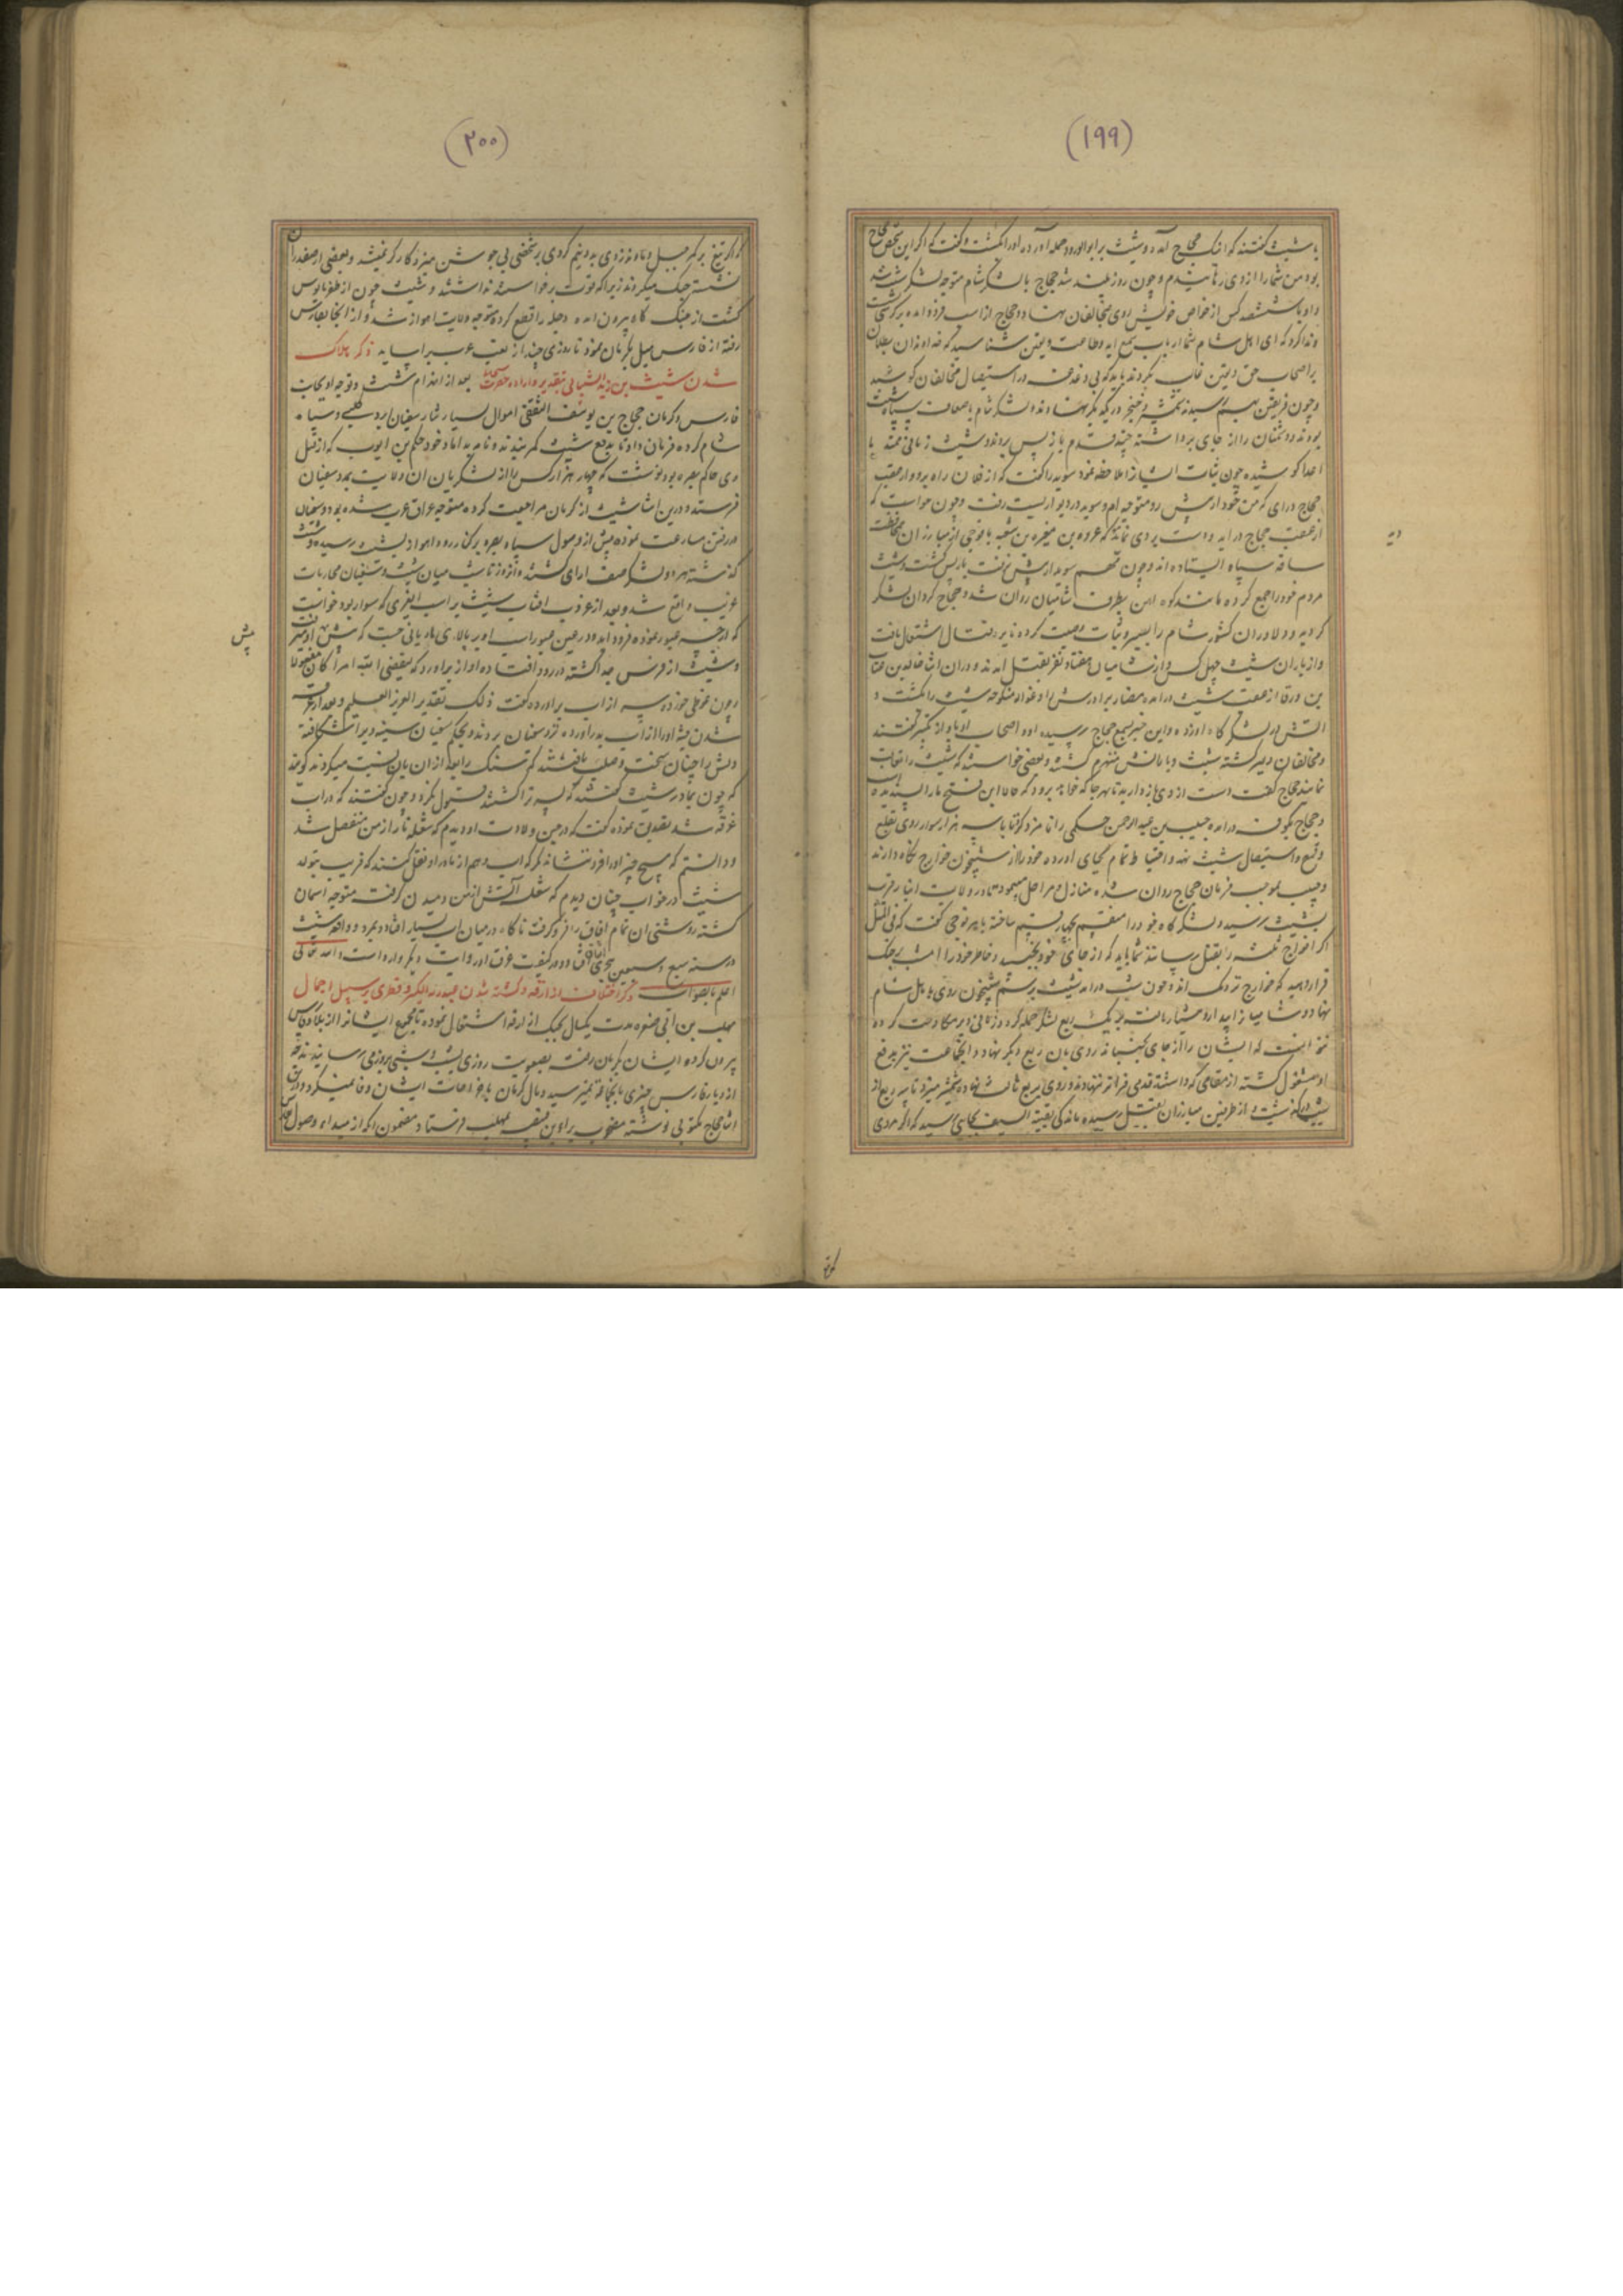 (۱۹۹)
با شیث گفتند که اینک حجاج آمد و شیث بر ابو الورد حمله آورده او را بکشت و گفت که اگر این شخص حجاج
بود من شما را از وی رهانیدم و چون روز بلند شد حجاج با لشکر شام متوجه لشکر شیث شد
و او با ششصد کس از خواص خویش روی بمخالفان نهاد و حجاج از اسب فرود آمده بر کرسی نشست
و ندا کرد که ای اهل شام شما ارباب سمع اید و طاعت و یقین شناسید که خداوندان بطلان
بر اصحاب حق و یقین غالب نگردند باید که بی دغدغه در استیصال مخالفان کوشید
و چون فریقین بهم رسیدند شمشیر و خنجر در یکدیگر نهادند لشکر شام باضعاف سپاه شیث
بودند دشمنان را از جای برداشته چند قدم باز پس بردند و شیث زمانی ممتد با
اعدا کوشیده چون ثبات ایشان را ملاحظه نمود سوید را گفت که از فلان راه برو و از عقب
حجاج درای که من خود از پیش رو متوجه ام و سوید در
از عقب حجاج در اید و دست بردی نماید که عروه بن مغیره بن شعبه با فوجی از مبارزان بمحافظت
ساقه سپاه ایستاده اند و چون مهم سوید از پیش نرفت باز پس گشت و شیث
مردم خود را جمع کرده مانند کوه اهن بطرف شامیان روان شد و حجاج کردان لشکر
کردیده و دلاوران کشور شام را بصبر و ثبات وصیت کرده نایره قتال اشتعال یافت
و از یاران شیث چهل کس و از شامیان هفتاد نفر بقتل امدند و در ان اثنا خالد بن عتاب
بن ورقا از عقب شیث درامده مضاد برادرش را و غزاله منکوحه شیث را بکشت و
اتش در لشکرگاه او زد و این خبر بسمع حجاج رسیده او و اصحاب او باواز تکبیر گفتند
و مخالفان دلیر گشته شیث و تابعانش منهزم گشتند و بعضی خواستند که شیث را تعاقب
نمایند حجاج گفت دست از وی باز دارید تا بهر جا که خواهد برود که حالا این فتح ما را پسندیده است
و حجاج بکوفه درامده حبیب بن عبد الرحمن حکمی را نامزد کرد تا با سه هزار سوار روی بقلع
و قمع و استیصال شیث نهد و احتیاط تمام بجای اورده خود را از شبیخون خوارج نگاه دارند
و حبیب بموجب فرمان حجاج روان شده منازل و مراحل میپیمود تا در ولایت انبار قریب
بشیث رسید و لشکرگاه خود را منقسم بچهار قسم ساخته با هر فوجی گفت که فی المثل
اگر خوارج همه را بقتل رسانند شما باید که از جای خود نجنبید و خاطر خود را امشب بر جنگ
قرار دهید که خوارج نزدیک اند و چون شب درامد شیث برسم شبیخون روی باهل شام
نهاد و شامیان را بیدار و هشیار یافت بر یک ربع لشکر حمله کرد و زمانی دیر مکاوحت کرده
نتوانست که ایشان را از جای بجنباند روی بان ربع دیگر نهاد و انجماعت نیز بدفع
او مشغول گشته از مقامی که داشتند قدمی فراتر ننهادند و روی بربع ثالث نهاده شمشیر میزد تا سه ربع از
شب درگذشت و از طرفین مبارزان بقتل رسیده ماندگی بقیة السیف بجایی رسید که اگر مردی
دید
(۲۰۰)
که اگر تیغ بر
نشسته جنگ میکردند زیرا که قوت برخواستن نداشتند و شیث چون از ظفر مایوس
گشت از جنگ گاه بیرون امده دجله را قطع کرده متوجه ولایت اهواز شد و از انجا بفارس
رفته از فارس میل بکرمان نمود تا روزی چند از تعب حرب براساید ذکر هلاک
شدن شیث بن زید الشیبانی بتقدیر و اراده حضرت سبحانی بعد از انهزام شیث و توجه او بجانب
فارس و کرمان حجاج بن یوسف الثقفی اموال بسیار نثار سفیان ابرد کلبی و سپاه
شام کرده فرمان داد تا بدفع شیث کمر بندند و نامه بداماد خود حکم بن ایوب که از قبل
وی حاکم بصره بود نوشت که چهار هزار کس را از لشکریان ان ولایت بمدد سفیان
فرستد و درین اثنا شیث از کرمان مراجعت کرده متوجه عراق عرب شده بود و سفیان
در رفتن مسارعت نموده پیش از وصول سپاه بصره بر کنار رود اهواز بشیث رسید و شیث
گذشته هر دو لشکر صف ارای گشتند و انروز تا شب میان شیث و سفیان محاربات
غریب واقع شد و بعد از غروب افتاب شیث بر اسب
که از جسر عبور نموده فرود اید و در عین عبور اسب او بر بالای مادیانی جست که پیش او میرفت
و شیث از فرس جدا گشته در رود افتاده اواز براورد که لیقضی الله امرا کان مفعولا
و چون غوطی خورده سر از اب براورده گفت ذلک تقدیر العزیز العلیم و بعد از غرق
شدن جثه او را از اب بدر اورده نزد سفیان بردند و بحکم سفیان سینه ویرا شکافته
دلش را چنان سخت و صلب یافتند که سنگ را بعد از ان بان نسبت میکردند گویند
که چون بمادر شیث گفتند که پسر ترا کشتند قبول نکرد و چون گفتند که در اب
غرقه شد تصدیق نموده گفت که در حین ولادت او دیدم که شعله نار از من منفصل شد
و دانستم که هیچ چیز او را فرو ننشاند مگر که اب و هم از مادر او نقل کنند که قریب بتولد
شیث در خواب چنان دیدم که شعله آتش از من دمیدن گرفت متوجه اسمان
گشته روشنی ان تمام افاق را فرو گرفت ناگاه در میان اب بسیار افتاد و بمرد و واقعه شیث
در سنه سبع و سبعین هجری اتفاق افتاد و در کیفیت غرق او روایت دیگر وارد است و الله تعالی
اعلم بالصواب ذکر اختلاف ازارقه و گشته شدن عبد ربه الکبیر و قطری بر سبیل اجمال
مهلب بن ابی صفره مدت یکسال بجنگ ازارقه اشتغال نموده تا مجموع ایشان را از بلاد فارس
بیرون کرده ایشان بکرمان رفته بصعوبت روزی بشب و شبی بروز می رسانیدند چه
از دیار فارس چیزی بانجماعه نمیرسید و مال کرمان باخراجات ایشان وفا نمیکرد و درین
اثنا حجاج مکتوبی نوشته مصحوب براء بن قبیصه بمهلب فرستاد مضمون انکه از مبداء وصول
پیش